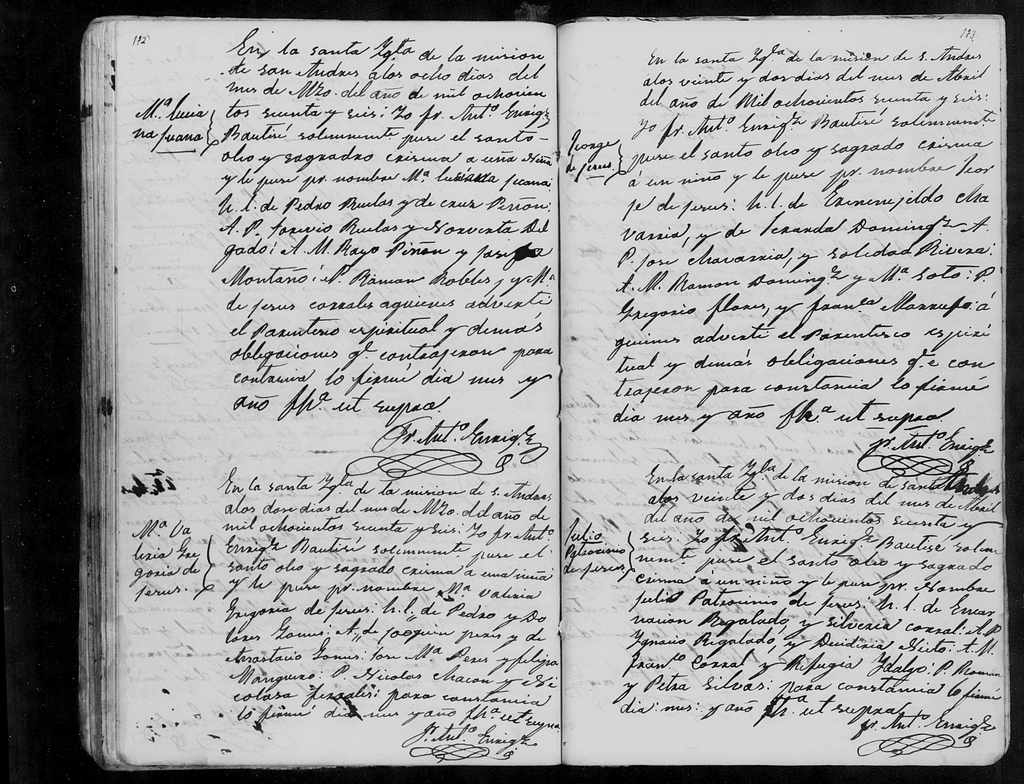 192
En la santa Ygta de la mision
de san Andres a los ocho dias del
mes de Mzo. del año de mil ochocien
tos secenta y seis: Yo fr. Anto. Enriqz
Ma. lucia
na juana
Bautisé solemnemente puse el santo
oleo y sagrado crisma a una Niña
y le puse pr. nombre Ma. luciana Juana:
h. l. de Pedro Ruelas y de cruz Piñon:
A. P. Ruelas y Norverta Del
gado: A. M. Rayo Piñon y
Montaño: P. Ramon Robles, y Ma.
de jesus corrales aquienes adverti
el Parentesco espiritual y demás
obligaciones qe. contrajeron para
contancia lo firmé dia mes y
año fha. ut supra.
Fr. Anto. Enriqz
En la santa Ygla de la mision de S. Andres
alos dos dias del mes de Mzo. del año de
mil ochocientos secenta y seis: Yo fr. Anto.
Ma. Va
leria Gre
goria de
jesus.
Enriqz Bautisé solemnemente puse el
santo oleo y sagrado crisma a una niña
y le puse por nombre Ma. Valeria
Gregoria de jesus: h. l. de Pedro y Do
lores Gomes: A. de joaquin peres y de
Anastacio Gomes: Jose Ma. Peres y felipa
Manquero: P. Nicolas Chacon y Ni
colasa para constancia
lo firmé dia mes y año fha. ut supra
Fr. Anto. Enriqz
193
En la santa Ygla de la mision de S. Andres
alos veinte y dos dias del mes de Abril
del año de Mil ochocientos secenta y seis:
Yo fr. Anto. Enriqz Bautisé solemnemte
Jeorge
de jesus.
puse el santo oleo y sagrado crisma
á un niño y le puse pr. nombre Jeor
je de jesus: h. l. de Ermenejildo cha
varria, y de Domingz A.
P. Jose chavarria, y soledad Rivera:
A. M. Ramon Domingz y Ma. Soto: P.
Gregorio flores, y franca Marrufo: á
quienes adverti el Parentesco espiri
tual y demás obligaciones qe con
trajeron para constancia lo firmé
dia mes y año fha. ut supra
fr. Anto. Enriqz
En la santa Ygla. de la mision de santo Andres
alos veinte y dos dias del mes de Abril
del año de mil ochocientos secenta y
Julio
Patrocinio
de jesus.
seis: Yo fr. Anto. Enriqz Bautisé solem
nemte. puse el santo oleo y sagrado
crisma á un niño y le puse pr. Nombre
julio Patrocinio de jesus: h. l. de Encar
nacion Regalado, y Silveria corral: A. P.
Ygnacio Regalado, y Nieto: A. M.
franco Corral y Refugia Ydalgo: P. Roman
y Petra Silvas: para constancia lo firmé
dia: mes: y año fha. ut supra
fr. Anto. Enriqz